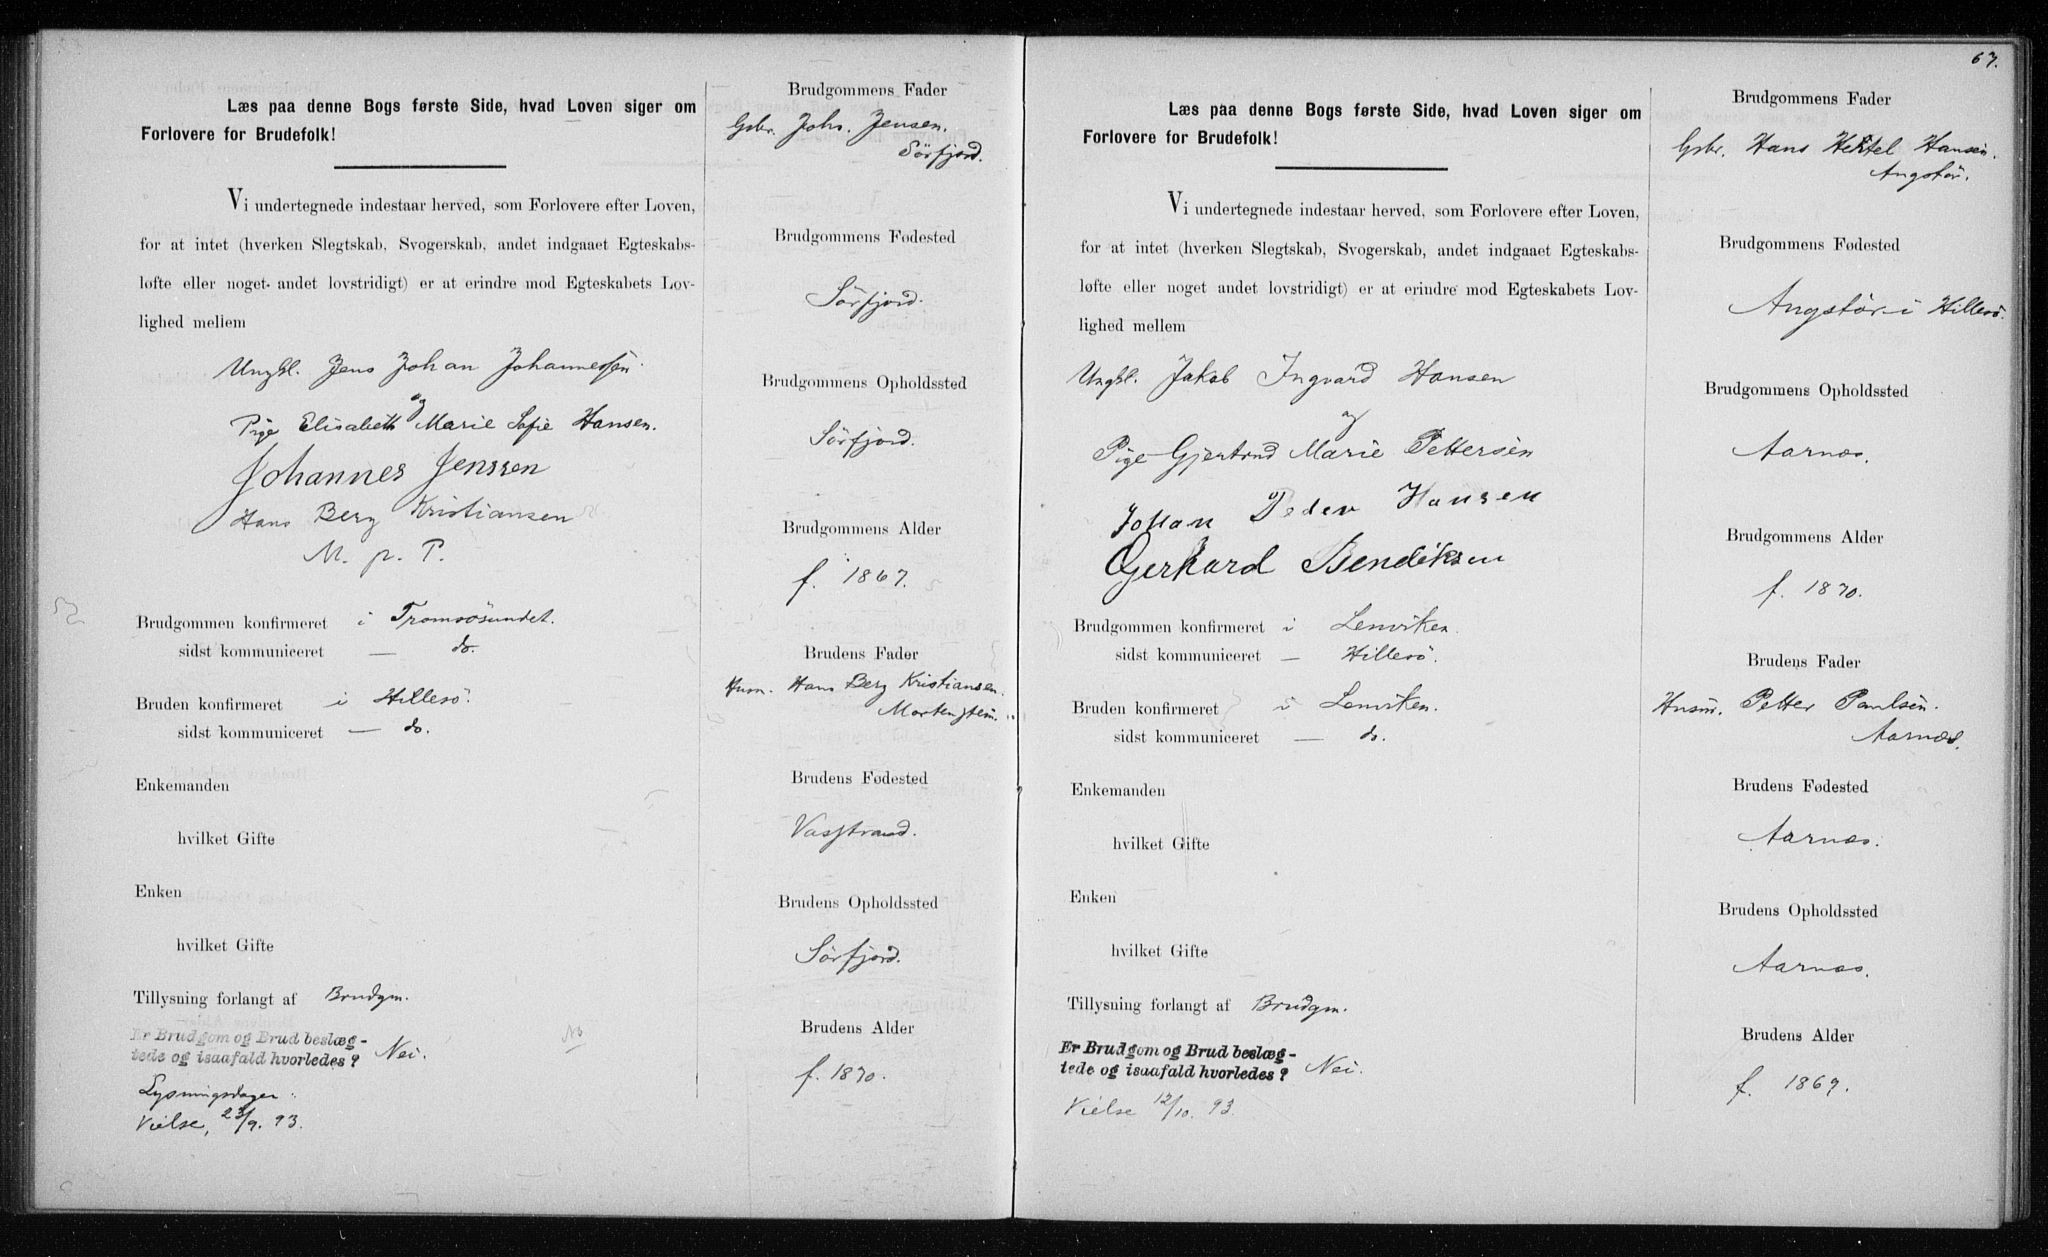 Læs paa denne Bogs første Side, hvad Loven siger om
Forlovere for Brudefolk!
Vi undertegnede indestaar herved, som Forlovere efter Loven,
for at intet (hverken Slegtskab, Svogerskab, andet indgaaet Egteskabs-
løfte eller noget andet lovstridigt) er at erindre mod Egteskabets Lov-
lighed mellem
Ungkl. Jens Johan Johannessen
og
Pige Elisabeth Marie Sofie Hansen.
Johannes Jenssen
Hans Berg Kristiansen
M. p. P.
Brudgommen konfirmeret i Tromsøsundet.
sidst kommuniceret — do.
Bruden konfirmeret i Hillesö.
sidst kommuniceret — do.
Enkemanden
hvilket Gifte
Enken
hvilket Gifte
Tillysning forlangt af Brudgm.
Er Brudgom og Brud beslæg-
tede og isaafald hvorledes? Nei.
Lysningsdager:
Vielse, 23/9. 93.
Brudgommens Fader
Gbr. Johs. Jensen.
Sörfjord.
Brudgommens Fødested
Sörfjord.
Brudgommens Opholdssted
Sörfjord.
Brudgommens Alder
f. 1867.
Brudens Fader
Husm. Hans Berg Kristiansen.
Mortenstein.
Brudens Fødested
Vasstrand.
Brudens Opholdssted
Sörfjord.
Brudens Alder
f. 1870.
67.
Læs paa denne Bogs første Side, hvad Loven siger om
Forlovere for Brudefolk!
Vi undertegnede indestaar herved, som Forlovere efter Loven,
for at intet (hverken Slegtskab, Svogerskab, andet indgaaet Egteskabs-
løfte eller noget andet lovstridigt) er at erindre mod Egteskabets Lov-
lighed mellem
Ungkl. Jakob Ingvard Hansen
og
Pige Gjertrud Marie Pettersen
Johan Peder Hansen
Gerhard Bendiksen
Brudgommen konfirmeret i Lenviken.
sidst kommuniceret — Hillesö.
Bruden konfirmeret i Lenviken.
sidst kommuniceret — do.
Enkemanden
hvilket Gifte
Enken
hvilket Gifte
Tillysning forlangt af Brudgm.
Er Brudgom og Brud beslæg-
tede og isaafald hvorledes? Nei.
Vielse 12/10. 93.
Brudgommens Fader
Gbr. Hans Hertel Hansen.
Angstör.
Brudgommens Fødested
Angstör i Hillesö.
Brudgommens Opholdssted
Aarnes.
Brudgommens Alder
f. 1870.
Brudens Fader
Husm. Petter Paulsen.
Aarnes.
Brudens Fødested
Aarnes.
Brudens Opholdssted
Aarnes.
Brudens Alder
f. 1869.